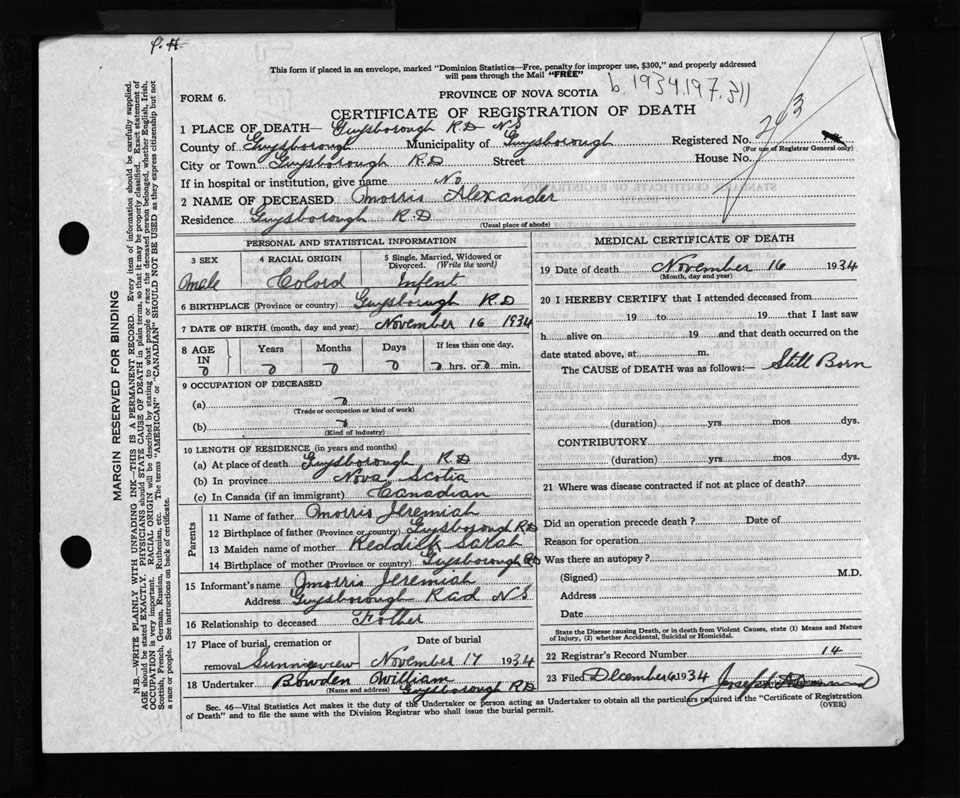 P. H.
This form if placed in an envelope, marked "Dominion Statistics—Free, penalty for improper use, $300," and properly addressed
will pass through the Mail "FREE"
b. 1934.197.311
FORM 6.
PROVINCE OF NOVA SCOTIA
CERTIFICATE OF REGISTRATION OF DEATH
263
1 PLACE OF DEATH— Guysborough R.D. N.S
County of Guysborough Municipality of Guysborough Registered No.
(For use of Registrar General only)
City or Town Guysborough R.D Street House No.
If in hospital or institution, give name No
2 NAME OF DECEASED Morris Alexander
Residence Guysborough R.D
(Usual place of abode)
PERSONAL AND STATISTICAL INFORMATION
3 SEX 4 RACIAL ORIGIN 5 Single, Married, Widowed or
Divorced. (Write the word)
Male Colord Infent
6 BIRTHPLACE (Province or country) Guysborough R.D
7 DATE OF BIRTH (month, day and year) November 16 1934
8 AGE IN Years Months Days If less than one day,
0 0 0 0 0 hrs. or 0 min.
9 OCCUPATION OF DECEASED
(a) 0
(Trade or occupation or kind of work)
(b) 0
(Kind of industry)
10 LENGTH OF RESIDENCE (in years and months)
(a) At place of death Guysborough R.D
(b) In province Nova Scotia
(c) In Canada (if an immigrant) Canadian
Parents
11 Name of father Morris Jeremiah
12 Birthplace of father (Province or country) Guysborough RD
13 Maiden name of mother Reddick Sarah
14 Birthplace of mother (Province or country) Guysborough RD
15 Informant's name Morris Jeremiah
Address Guysborough Rad N S
16 Relationship to deceased Father
17 Place of burial, cremation or Date of burial
removal Sunnieview November 17 1934
18 Undertaker Bowden William
(Name and address) Guysborough RD
MEDICAL CERTIFICATE OF DEATH
19 Date of death November 16 1934
(Month, day and year)
20 I HEREBY CERTIFY that I attended deceased from
19 to 19 that I last saw
h alive on 19 and that death occurred on the
date stated above, at m.
The CAUSE of DEATH was as follows:— Still Born
(duration) yrs mos dys.
CONTRIBUTORY
(duration) yrs mos dys.
21 Where was disease contracted if not at place of death?
Did an operation precede death? Date of
Reason for operation
Was there an autopsy?
(Signed) M.D.
Address
Date
State the Disease causing Death, or in death from Violent Causes, state (1) Means and Nature
of Injury, (2) whether Accidental, Suicidal or Homicidal.
22 Registrar's Record Number 14
23 Filed December 6 1934 Joseph
Sec. 46—Vital Statistics Act makes it the duty of the Undertaker or person acting as Undertaker to obtain all the particulars required in the "Certificate of Registration
of Death" and to file the same with the Division Registrar who shall issue the burial permit.
(OVER)
MARGIN RESERVED FOR BINDING
N.B.—WRITE PLAINLY WITH UNFADING INK—THIS IS A PERMANENT RECORD. Every item of information should be carefully supplied.
AGE should be stated EXACTLY. PHYSICIANS should STATE CAUSE OF DEATH in plain terms, so that it may be properly classified. Exact statement of
OCCUPATION is very important. RACIAL ORIGIN will be described by stating to what people or race the deceased person belonged, whether English, Irish,
Scottish, French, German, Russian, Ruthenian, etc. The terms "AMERICAN" or "CANADIAN" SHOULD NOT BE USED as they express citizenship but not
a race or people. See instructions on back of certificate.